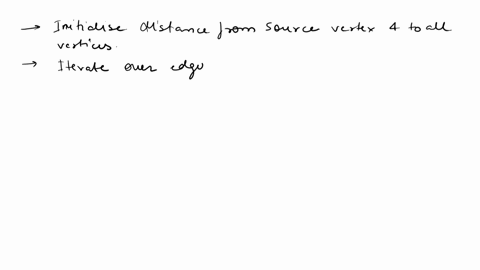 → Initialise distance from source vertex 4 to all
vertices.
→ Iterate over edge